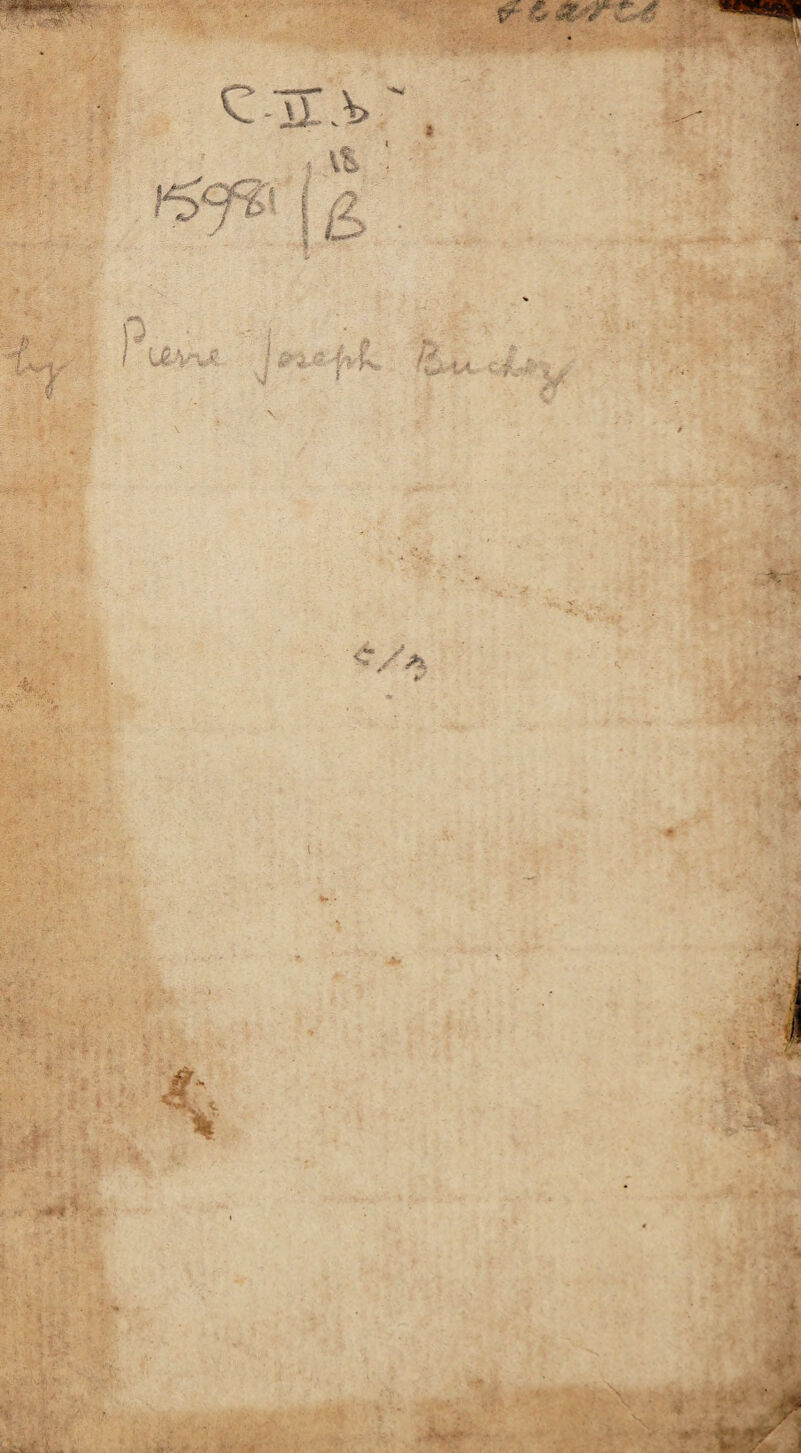 C.II.b
18
15981 | B
by Pierre Joseph Buchoz
c/n